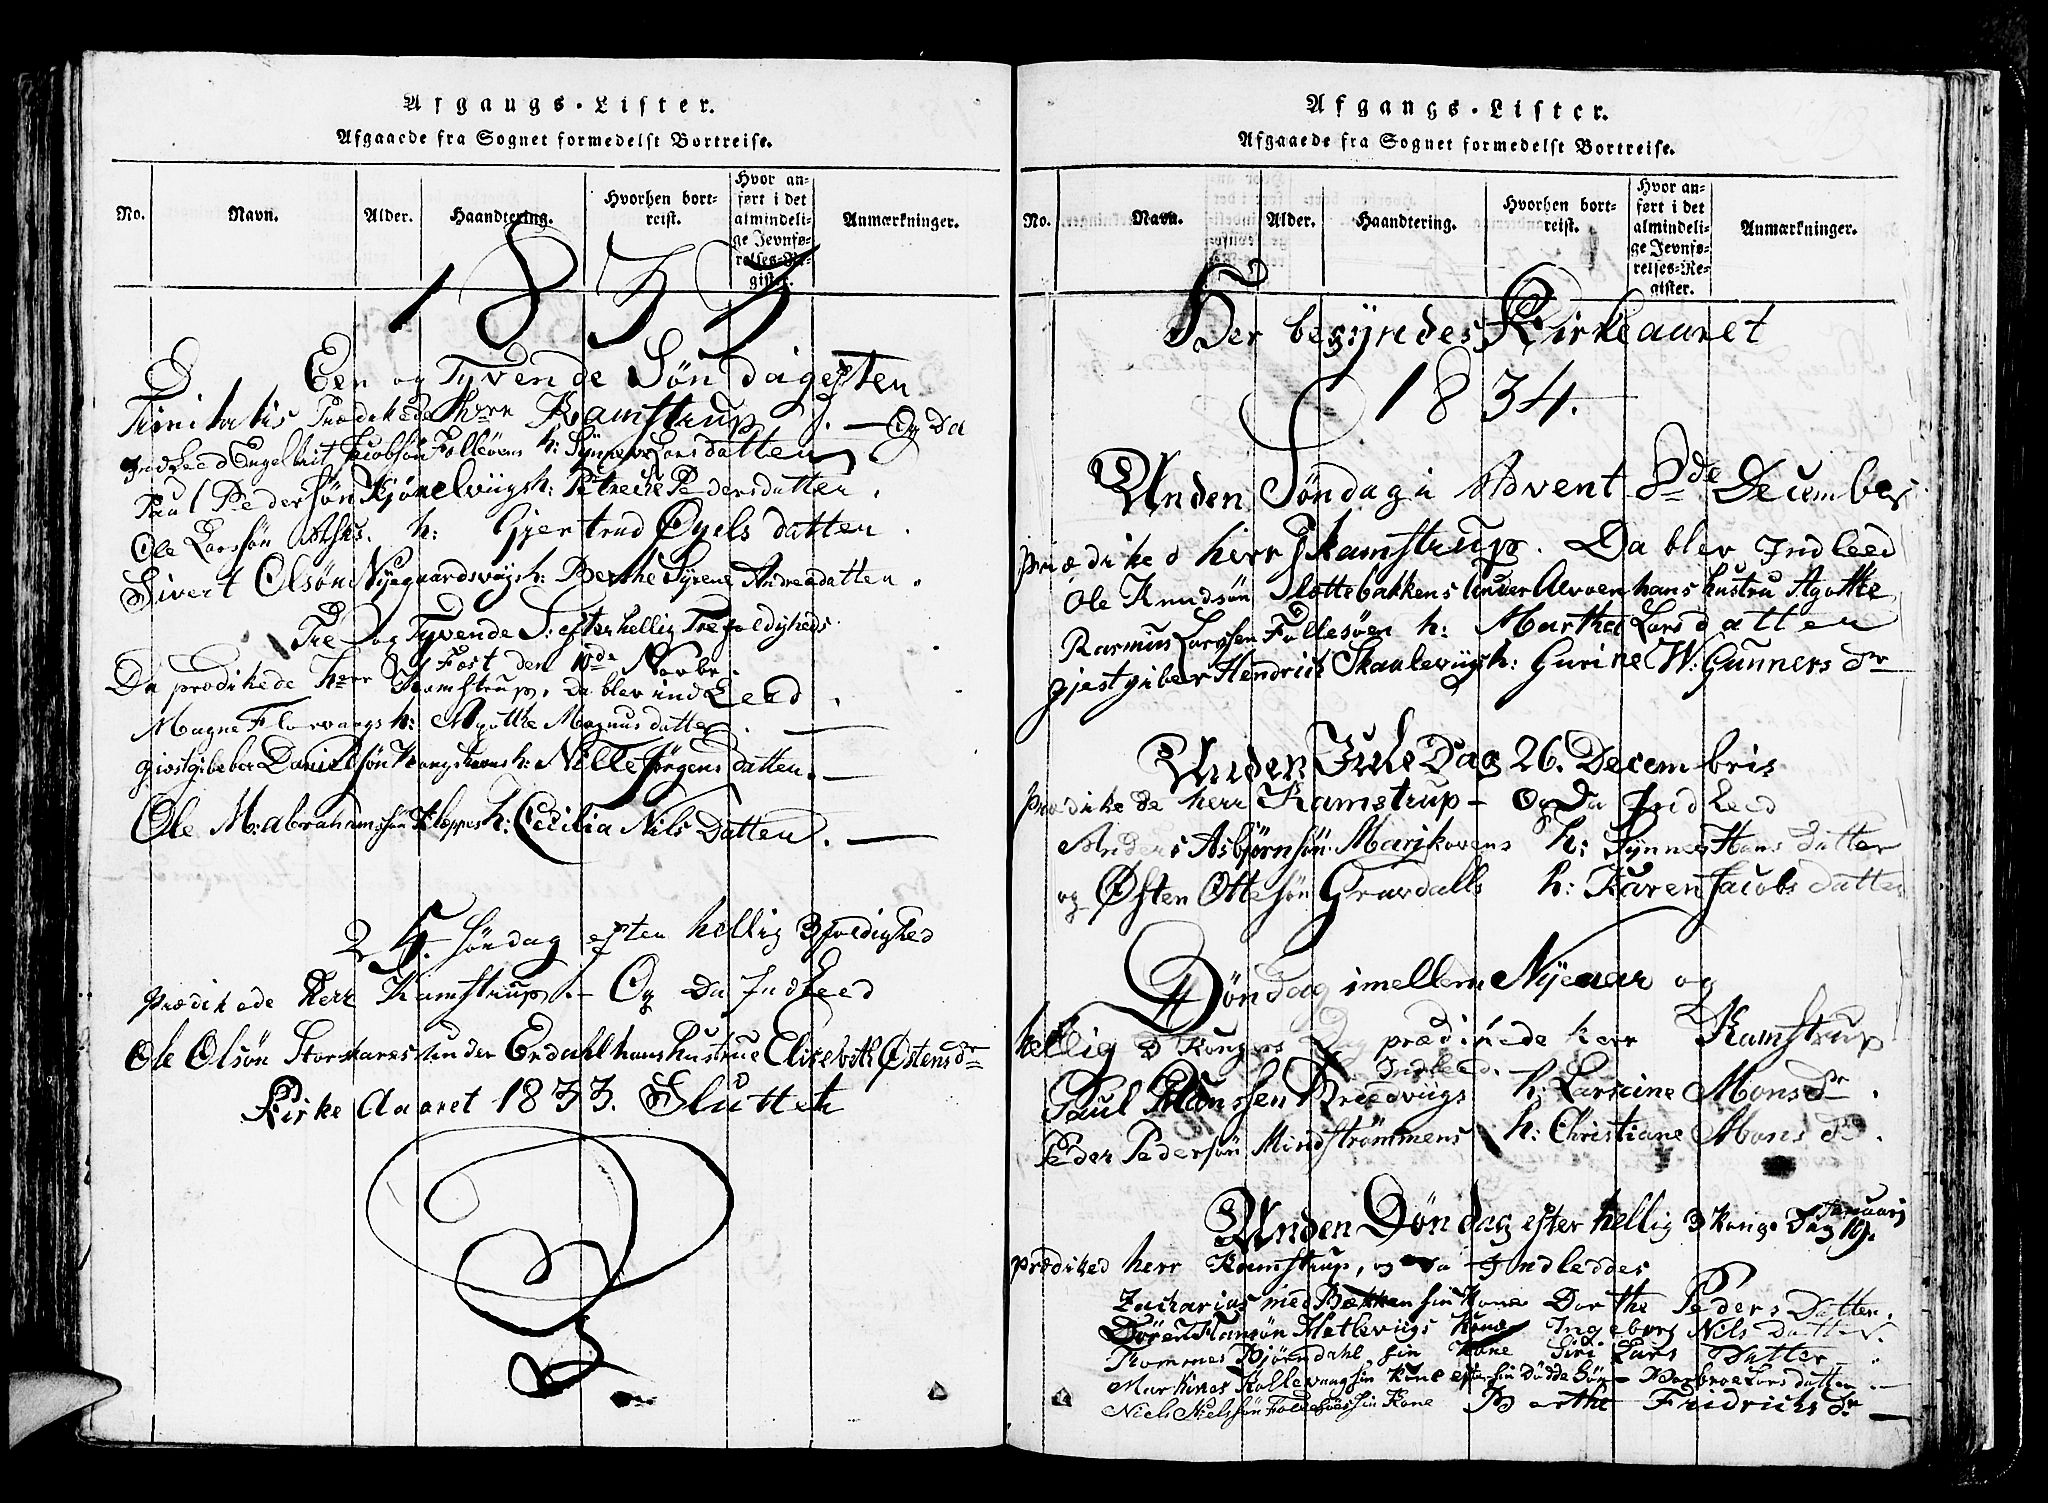 Afgangs-Lister.
Afgaaede fra Sognet formedelst Bortreise.
No.
Navn.
Alder.
Haandtering.
Hvorhen bort-
reist.
Hvor an-
ført i det
almindeli-
ge Jevnfø-
relses-Re-
gister.
Anmærkninger.
1833
Een og Tyvende Søndag eften
Trinitatis Prædikede Herr Kamstrup. — Og Da
IndLeed Engelbrit Jacobsøn Follesøens h: Synneve Larsdatten
Paul Pedersøn Kjøkelviigs h: Petreche Pedersdatten.
Ole Larssøn Asks. h: Gjertrud Øyels datten.
Sivert Olsøn Nyegaardsviigs h: Berthe Syrene Andreadatten.
Tre og Tyvende S: efter hellig Trefoldigheds
Fest den 10de Novbr:
Da prædikede Herr Kamstrup, Da blev indLeed.
Magne Florvaags h: Agothe Magnusdatter. —
giestgibeber Danielsøn h: Nille Jørgens datten. —
Ole M: abrahamssøn Kleppes h: Cecilia Nils Datten. —
25. Søndag eften hellig 3foldighed
Prædikede Herr Kamstrup. — Og Da IndLeed
Ole Olsøn Storskares under Erdahl hans Hustrue Elisebeth Østensdr
Kirke Aaaret 1833. Sluttet
Afgangs-Lister.
Afgaaede fra Sognet formedelst Bortreise.
No.
Navn.
Alder.
Haandtering.
Hvorhen bort-
reist.
Hvor an-
ført i det
almindeli-
ge Jevnfø-
relses-Re-
gister.
Anmærkninger.
Her begyndes Kirkeaaret
1834.
Anden Søndag i Advent 8de December
Prædiked herr Kamstrup. Da blev Indleed
Ole Knudsøn Slottebakkens under Alvoen hans hustru Agothe
Rasmus Larssen Follesøen h: Marthe Larsdatten
gjestgiber Hendrich Skaaleviigs h: Gurine W. Gunners dr
Anden Jule Dag 26. Decembris
Prædikede herr Kamstrup — Og Da IndLeed
Anders Asbjørnsøn Marikovens h: Synnes Hans datter
og Østen Ottesøn Gravdalls h: Karen Jacobs datter
Søndag imellem Nyeaar og
hellig 3 Kongers Dag prædikede herr Kamstrup
Indleed.
Paul Monssen Bredviigs h: Larsine Monsdr.
Peder Pedersøn Mindstrømmens h: Christiane Mons dr.
Anden Søndag efter hellig 3 Konge Dag 19. Januarj
prædiked herr Kamstrup, og Da Indleddes
Zacharias med Bekken sin Kone Dorthe Peders Datten.
Søren Hansøn Hetleviigs Kone Ingeborg Nils datter.
Thommes Bjørndahl sin Kone Siri Lars Datter.
Markines Kollevaag sin Kone efter sin Dødde Søn — Barbroe Larsdatten. —
Niels Nielssøn Follesøes sin Kone Berthe Fridrichs dr —